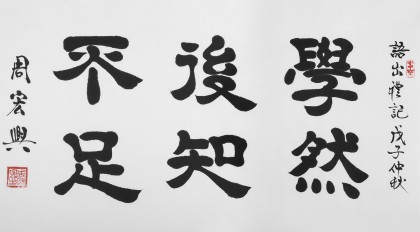 語出禮記 戊子仲秋
學然
後知
不足
周宏興